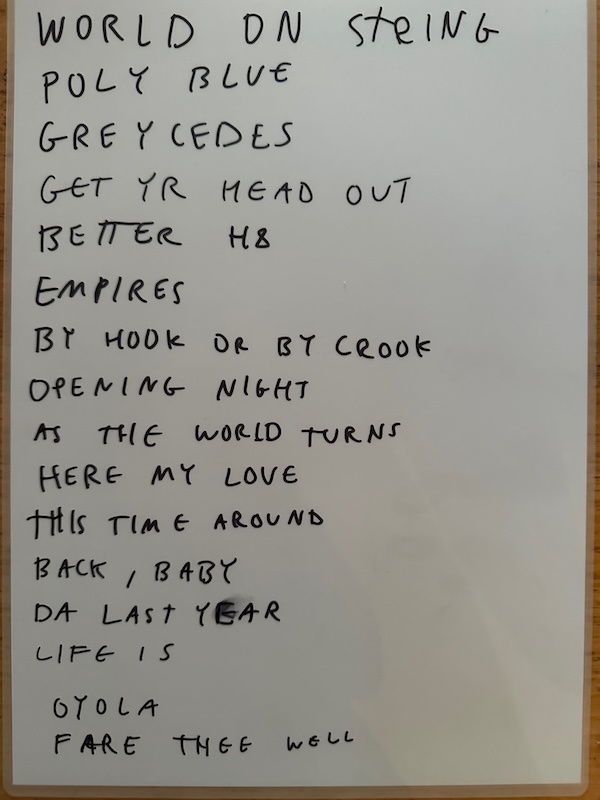 WORLD ON STRING
POLY BLUE
GREYCEDES
GET YR HEAD OUT
BETTER H8
EMPIRES
BY HOOK OR BY CROOK
OPENING NIGHT
AS THE WORLD TURNS
HERE MY LOVE
THIS TIME AROUND
BACK, BABY
DA LAST YEAR
LIFE IS
OYOLA
FARE THEE WELL